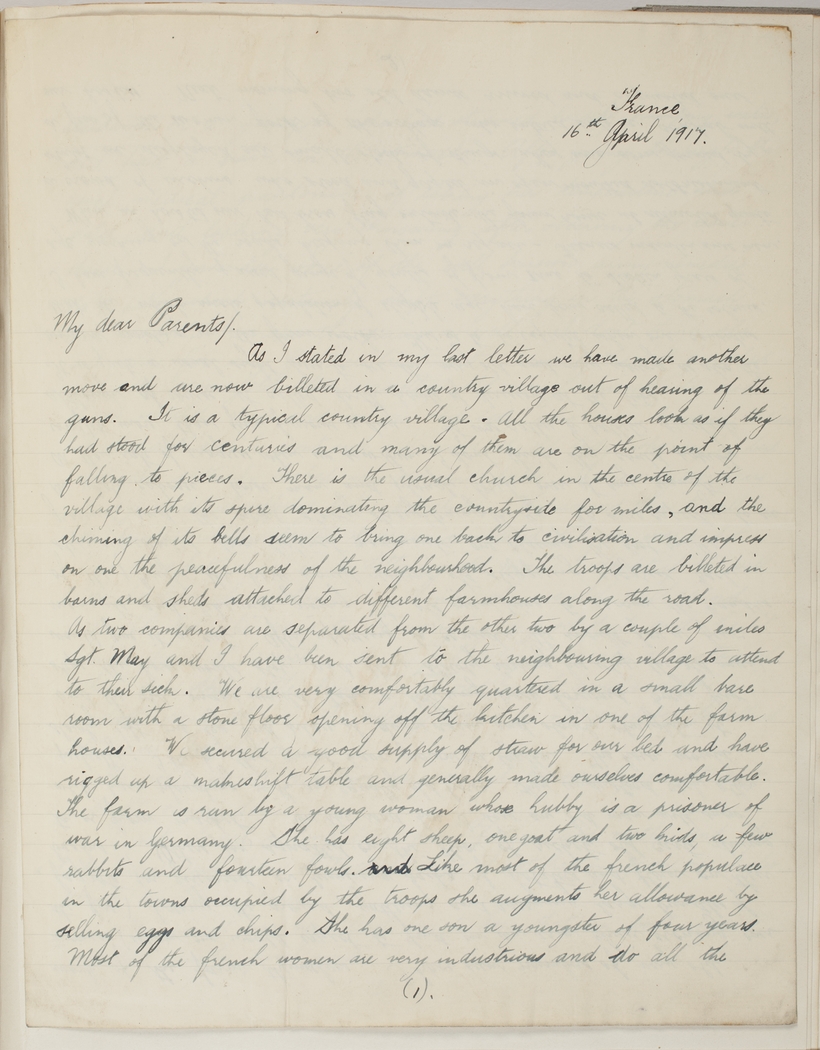 France
16th April 1917.
My dear Parents/.
As I stated in my last letter we have made another
move and are now billeted in a country village out of hearing of the
guns. It is a typical country village. All the houses look as if they
had stood for centuries and many of them are on the point of
falling to pieces. There is the usual church in the centre of the
village with its spire dominating the countryside for miles, and the
chiming of its bells seem to bring one back to civilisation and impress
on one the peacefulness of the neighbourhood. The troops are billeted in
barns and sheds attached to different farmhouses along the road.
As two companies are separated from the other two by a couple of miles
Sgt. May and I have been sent to the neighbouring village to attend
to their sick. We are very comfortably quartered in a small bare
room with a stone floor opening off the kitchen in one of the farm
houses. We secured a good supply of straw for our bed and have
rigged up a makeshift table and generally made ourselves comfortable.
The farm is run by a young woman whose hubby is a prisoner of
war in Germany. She has eight sheep, one goat and two kids, a few
rabbits and fourteen fowls. and Like most of the french populace
in the towns occupied by the troops she augments her allowance by
selling eggs and chips. She has one son a youngster of four years.
Most of the french women are very industrious and do all the
(1).